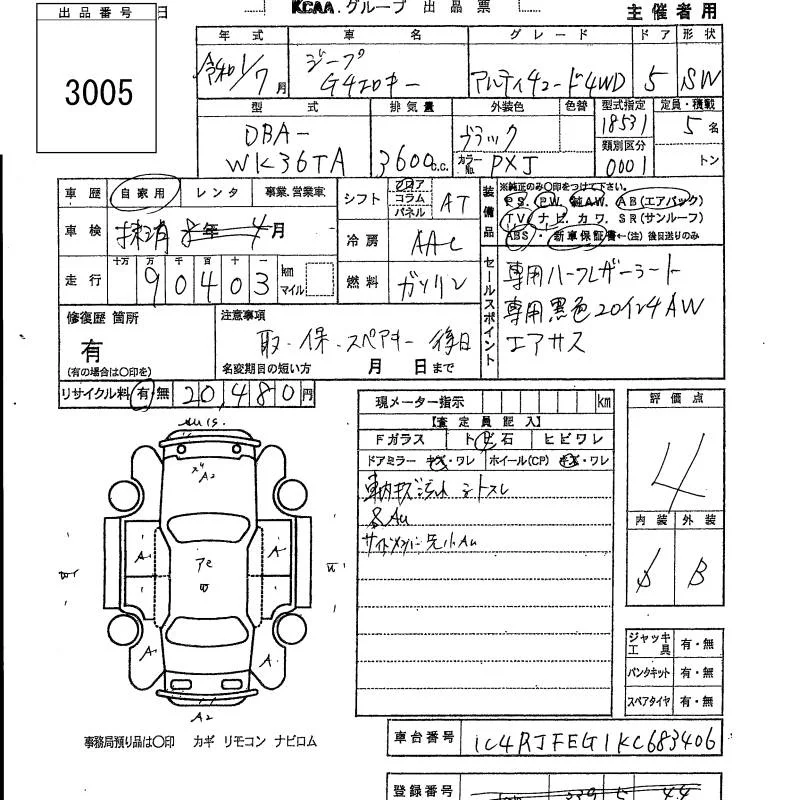 出品番号
日
KCAA.グループ 出品票
主催者用
3005
年式 車名 グレード ドア 形状
令和1/7月 ジープ
G4エロキー アルティチュード4WD 5 SW
型式 排気量 外装色 色替 型式指定 定員・積載
DBA-
WK36TA 3600c.c. ブラック
カラーNo. PXJ
18531
類別区分
0001
5名
トン
車歴 自家用 レンタ 事業.営業車
シフト フロア コラム パネル AT
装備品
※純正のみ○印をつけて下さい。
P.S. P.W. 純AW. AB(エアバック)
T.V. ナビ. カワ. SR(サンルーフ)
ABS・新車保証書←(注)後日送りのみ
車検 抹消 月
冷房 AAC
走行 十万 万 千 百 十 一 km マイル
90403
燃料 ガソリン
セールスポイント
専用ハーフレザーシート
専用黒色20インチAW
エアサス
修復歴 箇所
有
(有の場合は○印を)
注意事項
取・保・スペアキー 後日
名変期目の短い方 月 日まで
リサイクル料 有・無 20,480円
現メーター指示 km
【査定員記入】
Fガラス 飛石 ヒビワレ
ドアミラー キズ・ワレ ホイール(CP) キズ・ワレ
車内キズ シトスレ
各AU
評価点
4
内装 外装
B
A2
A
A
A
A
A2
ジャッキ工具 有・無
パンクキット 有・無
スペアタイヤ 有・無
事務局預り品は○印 カギ リモコン ナビロム
車台番号 1C4RJFEG1KC683406
登録番号